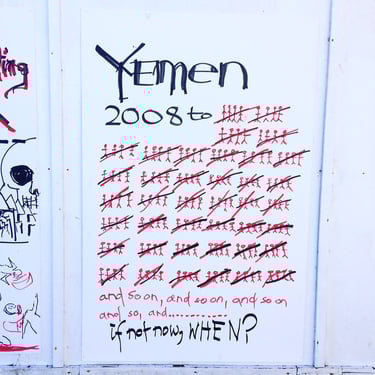 ting
Yemen
2008 to
and so on, and so on, and so on
and so, and............
if not now, WHEN?